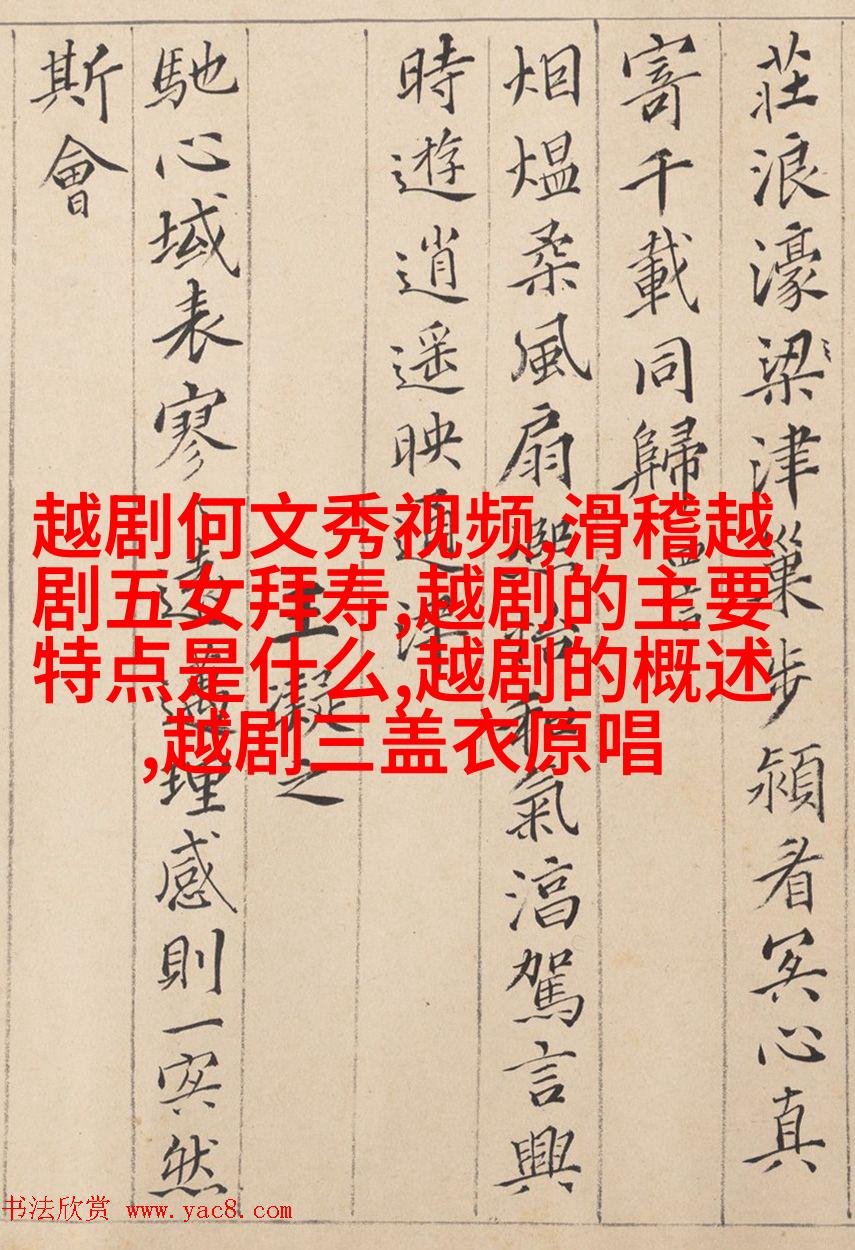 莊浪濠梁津巢步潁冥心真
寄千載同歸
烟熅柔風扇熙怡和氣淳駕言興
時遊逍遥映通津
王凝之
馳心域表寥〻遠邁理感則一冥然
斯會
越剧何文秀视频,滑稽越
剧五女拜寿,越剧的主要
特点是什么,越剧的概述
,越剧三盖衣原唱
书法欣赏 www.yac8.com